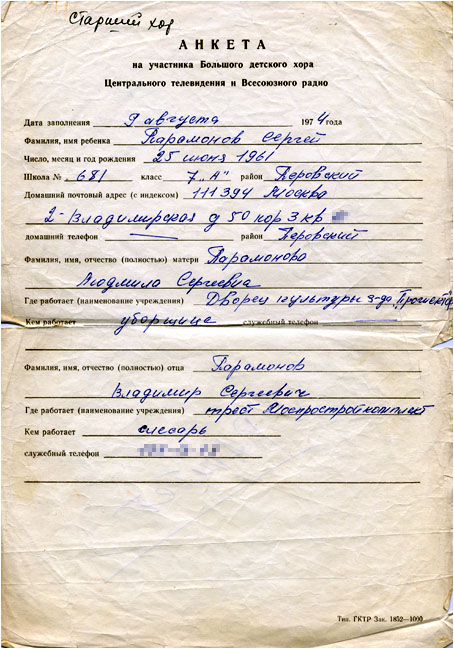 Старший хор
АНКЕТА
на участника Большого детского хора
Центрального телевидения и Всесоюзного радио
Дата заполнения 9 августа 1974 года
Фамилия, имя ребенка Парамонов Сергей
Число, месяц и год рождения 25 июня 1961
Школа № 681 класс 7 „А" район Перовский
Домашний почтовый адрес (с индексом) 111394 Москва
2-Владимирская д 50 кор 3 кв
домашний телефон — район Перовский
Фамилия, имя, отчество (полностью) матери Парамонова
Людмила Сергеевна
Где работает (наименование учреждения) Дворец культуры з-да
Кем работает уборщица служебный телефон —
Фамилия, имя, отчество (полностью) отца Парамонов
Владимир Сергеевич
Где работает (наименование учреждения) трест Моспростройкомплект
Кем работает слесарь
служебный телефон
Тип. ГКТР Зак. 1852—1000